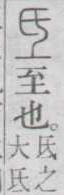 氐至也。
氐之
大氐